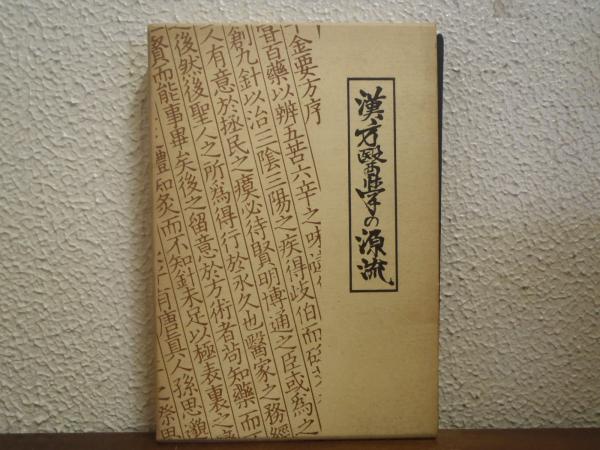 漢方醫学の源流
金要方序
嘗百藥以辨五苦六辛之味
創九針以治三陰三陽之疾得歧伯而
人有意於拯民之瘼必待賢明博通之臣或為之
後然後聖人之所為得行於永久也醫家之務經
賢而能事畢矣後之留意於方術者苟知藥而
禮知灸而不知針未足以極表裏之
有唐真人孫思邈